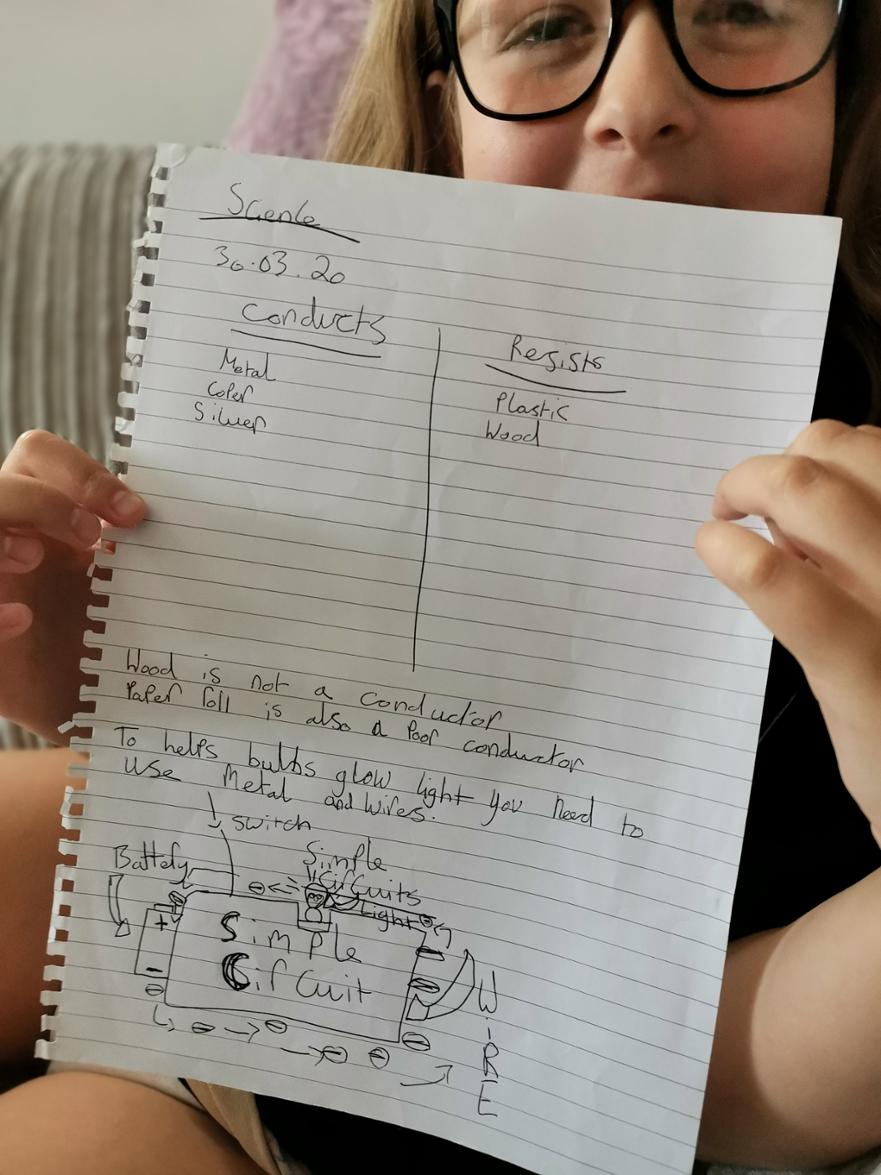 Science
30.03.20
Conducts
Metal
Coper
Silver
Resists
Plastic
Wood
Wood is not a conductor
Paper foll is also a Poor conductor
To helps bulbs glow light you need to
use Metal and wires.
switch
Battery
Simple
Circuits
Light
+
-
Simple
Circuit
WiRE